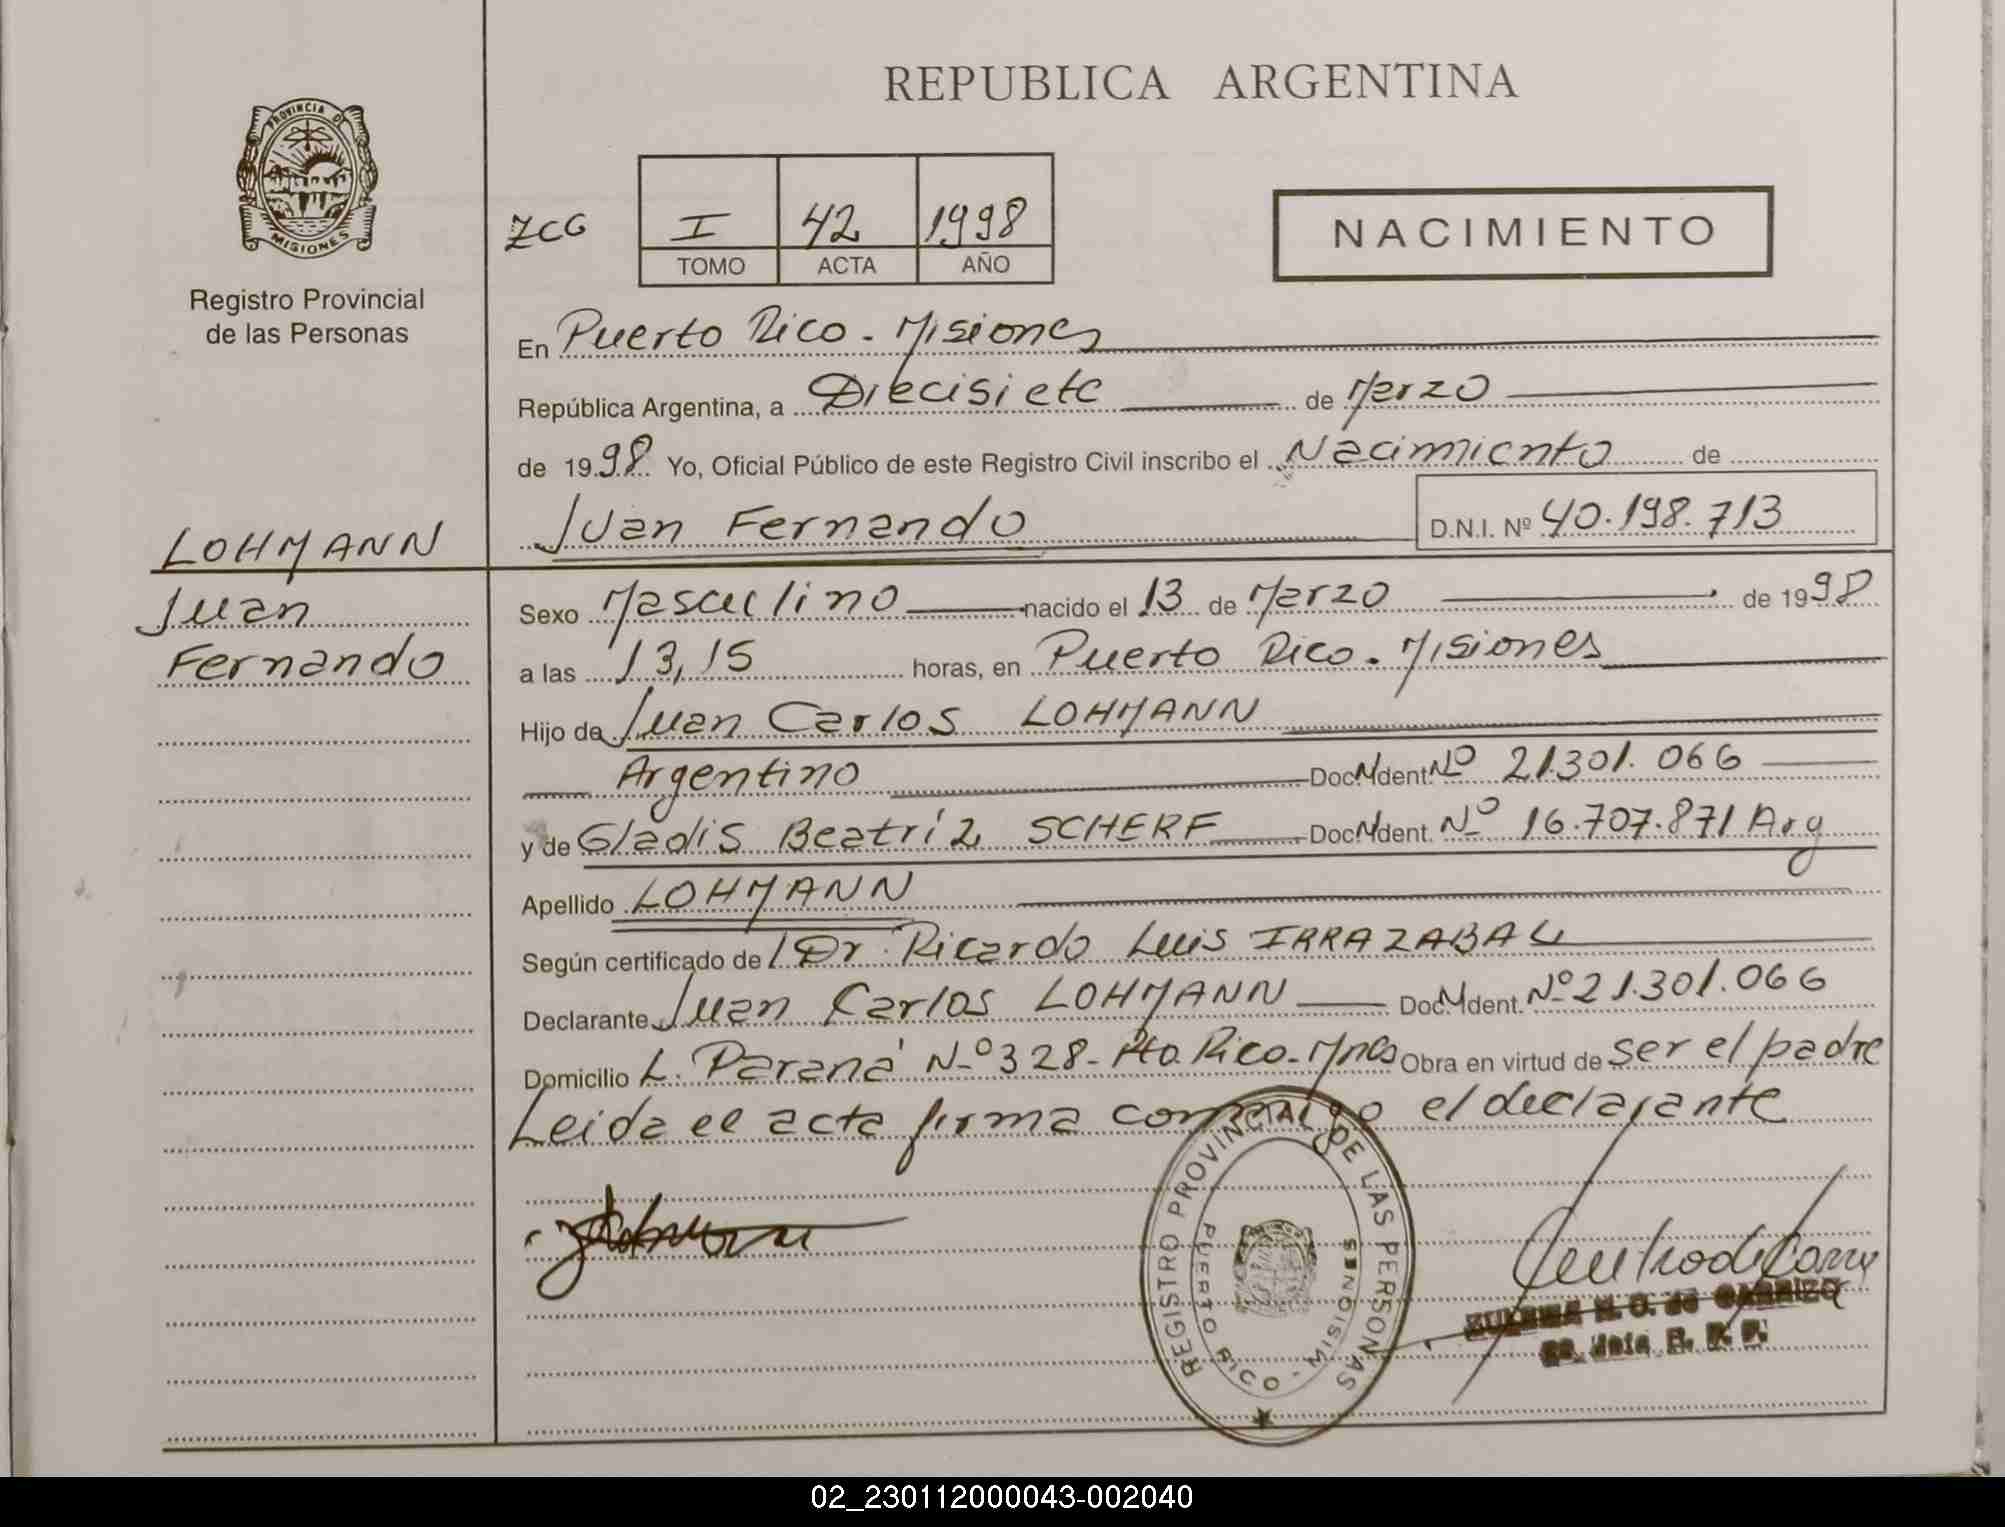 REPUBLICA ARGENTINA
PROVINCIA DE
MISIONES
Registro Provincial
de las Personas
ZCG
I 42 1998
TOMO ACTA AÑO
NACIMIENTO
En Puerto Rico - Misiones
República Argentina, a Diecisiete de Marzo
de 1998 Yo, Oficial Público de este Registro Civil inscribo el Nacimiento de
Juan Fernando D.N.I. Nº 40.198.713
LOHMANN
Juan
Fernando
Sexo Masculino nacido el 13 de Marzo de 1998
a las 13,15 horas, en Puerto Rico - Misiones
Hijo de Juan Carlos LOHMANN
Argentino Doc. Ident. Nº 21.301.066
y de Gladis Beatríz SCHERF Doc. Ident. Nº 16.707.871 Arg
Apellido LOHMANN
Según certificado de Dr. Ricardo Luis IRRAZABAL
Declarante Juan Carlos LOHMANN Doc. Ident. Nº 21.301.066
Domicilio L. Paraná Nº 328 - Pto. Rico - Mnes Obra en virtud de ser el padre
Leida el acta firma conmigo el declarante
REGISTRO PROVINCIAL DE LAS PERSONAS
PUERTO RICO - MISIONES
ZULEMA de CARRIZO
02_230112000043-002040